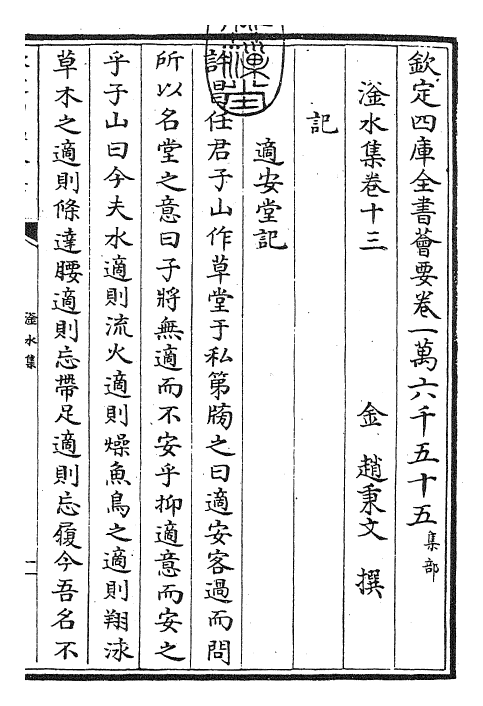 欽定四庫全書薈要卷一萬六千五十五集部
滏水集卷十三 金 趙秉文 撰
記
適安堂記
許昌任君子山作草堂于私第牓之曰適安客過而問
所以名堂之意曰子將無適而不安乎抑適意而安之
乎子山曰今夫水適則流火適則燥魚鳥之適則翔泳
草木之適則條達腰適則忘帶足適則忘履今吾名不
滏水集
一